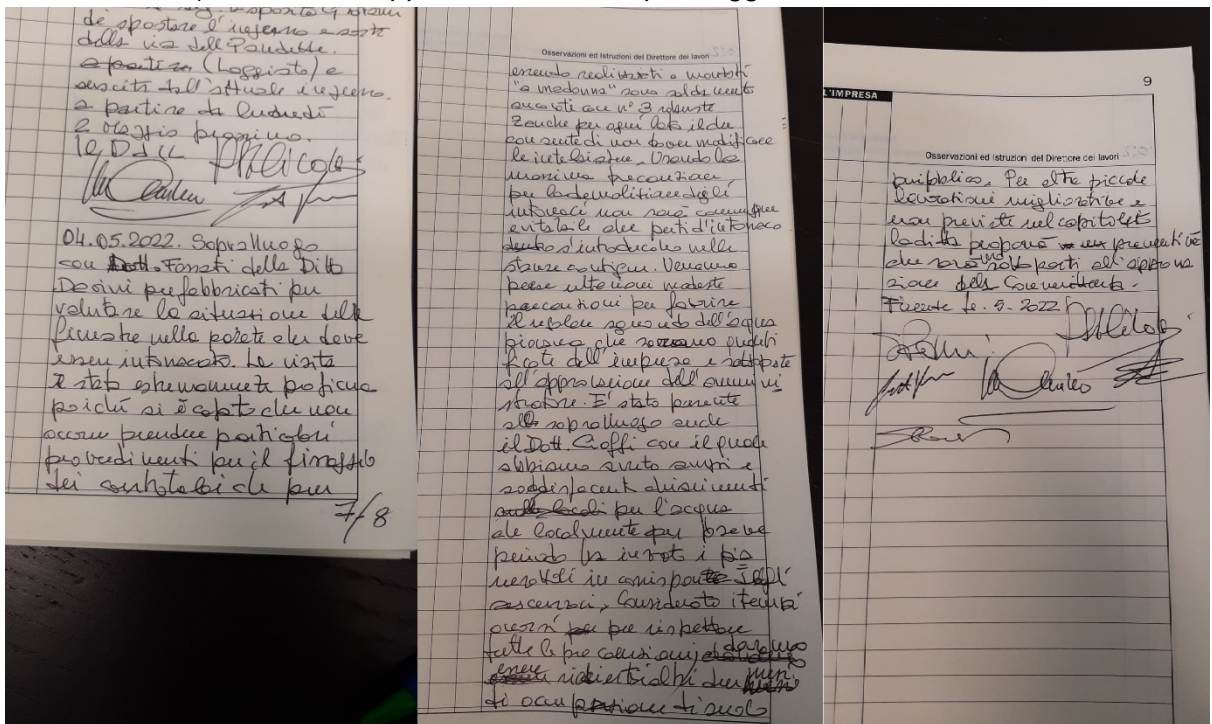 de spostare l'ingresso e
della via dell
(Loggiato) e
usciti dall'attuale ingresso.
a partire da Lunedì
2 Maggio prossimo.
04.05.2022. Sopralluogo
con Dott. della Ditta
Desini prefabbricati per
valutare la situazione delle
finestre nella parete che deve
essere intonacato. La visita
è stata estremamente proficua
poiché si è capito che non
occorre prendere particolari
provvedimenti per il fissaggio
dei controtelai che pur
7/8
Osservazioni ed Istruzioni del Direttore dei lavori
essendo realizzati a
"a madonna" sono saldamente
ancorati con n° 3 robuste
zanche per ogni lato il che
consente di non dover modificare
le intelaiature. Usando la
massima precauzione
per la demolizione degli
intonaci non sarà comunque
evitabile che parti d'intonaco
s'introducano nelle
stanze contigue. Verranno
prese ulteriori modeste
precauzioni per favorire
il regolare sgrondo dell'acqua
piovana che saranno quanti
ficate dall'impresa e sottoposte
all'approvazione dell'ammini
stratore. E' stato presente
al sopralluogo anche
il Dott. Cioffi con il quale
abbiamo avuto ampi e
soddisfacenti chiarimenti
per l'acqua
che localmente per breve
periodo ha i più
in degli
ascensori. Considerato i tempi
per rispettare
tutte le
essere richiesti altri due
di occupazione di suolo
9
L'IMPRESA
Osservazioni ed Istruzioni del Direttore dei lavori
pubblico. Per altre piccole
lavorazioni migliorative e
non previste nel capitolato
la ditta proporrà preventivi
che saranno sottoposti all'approva
zione della Committenza.
Firenze 5. 2022